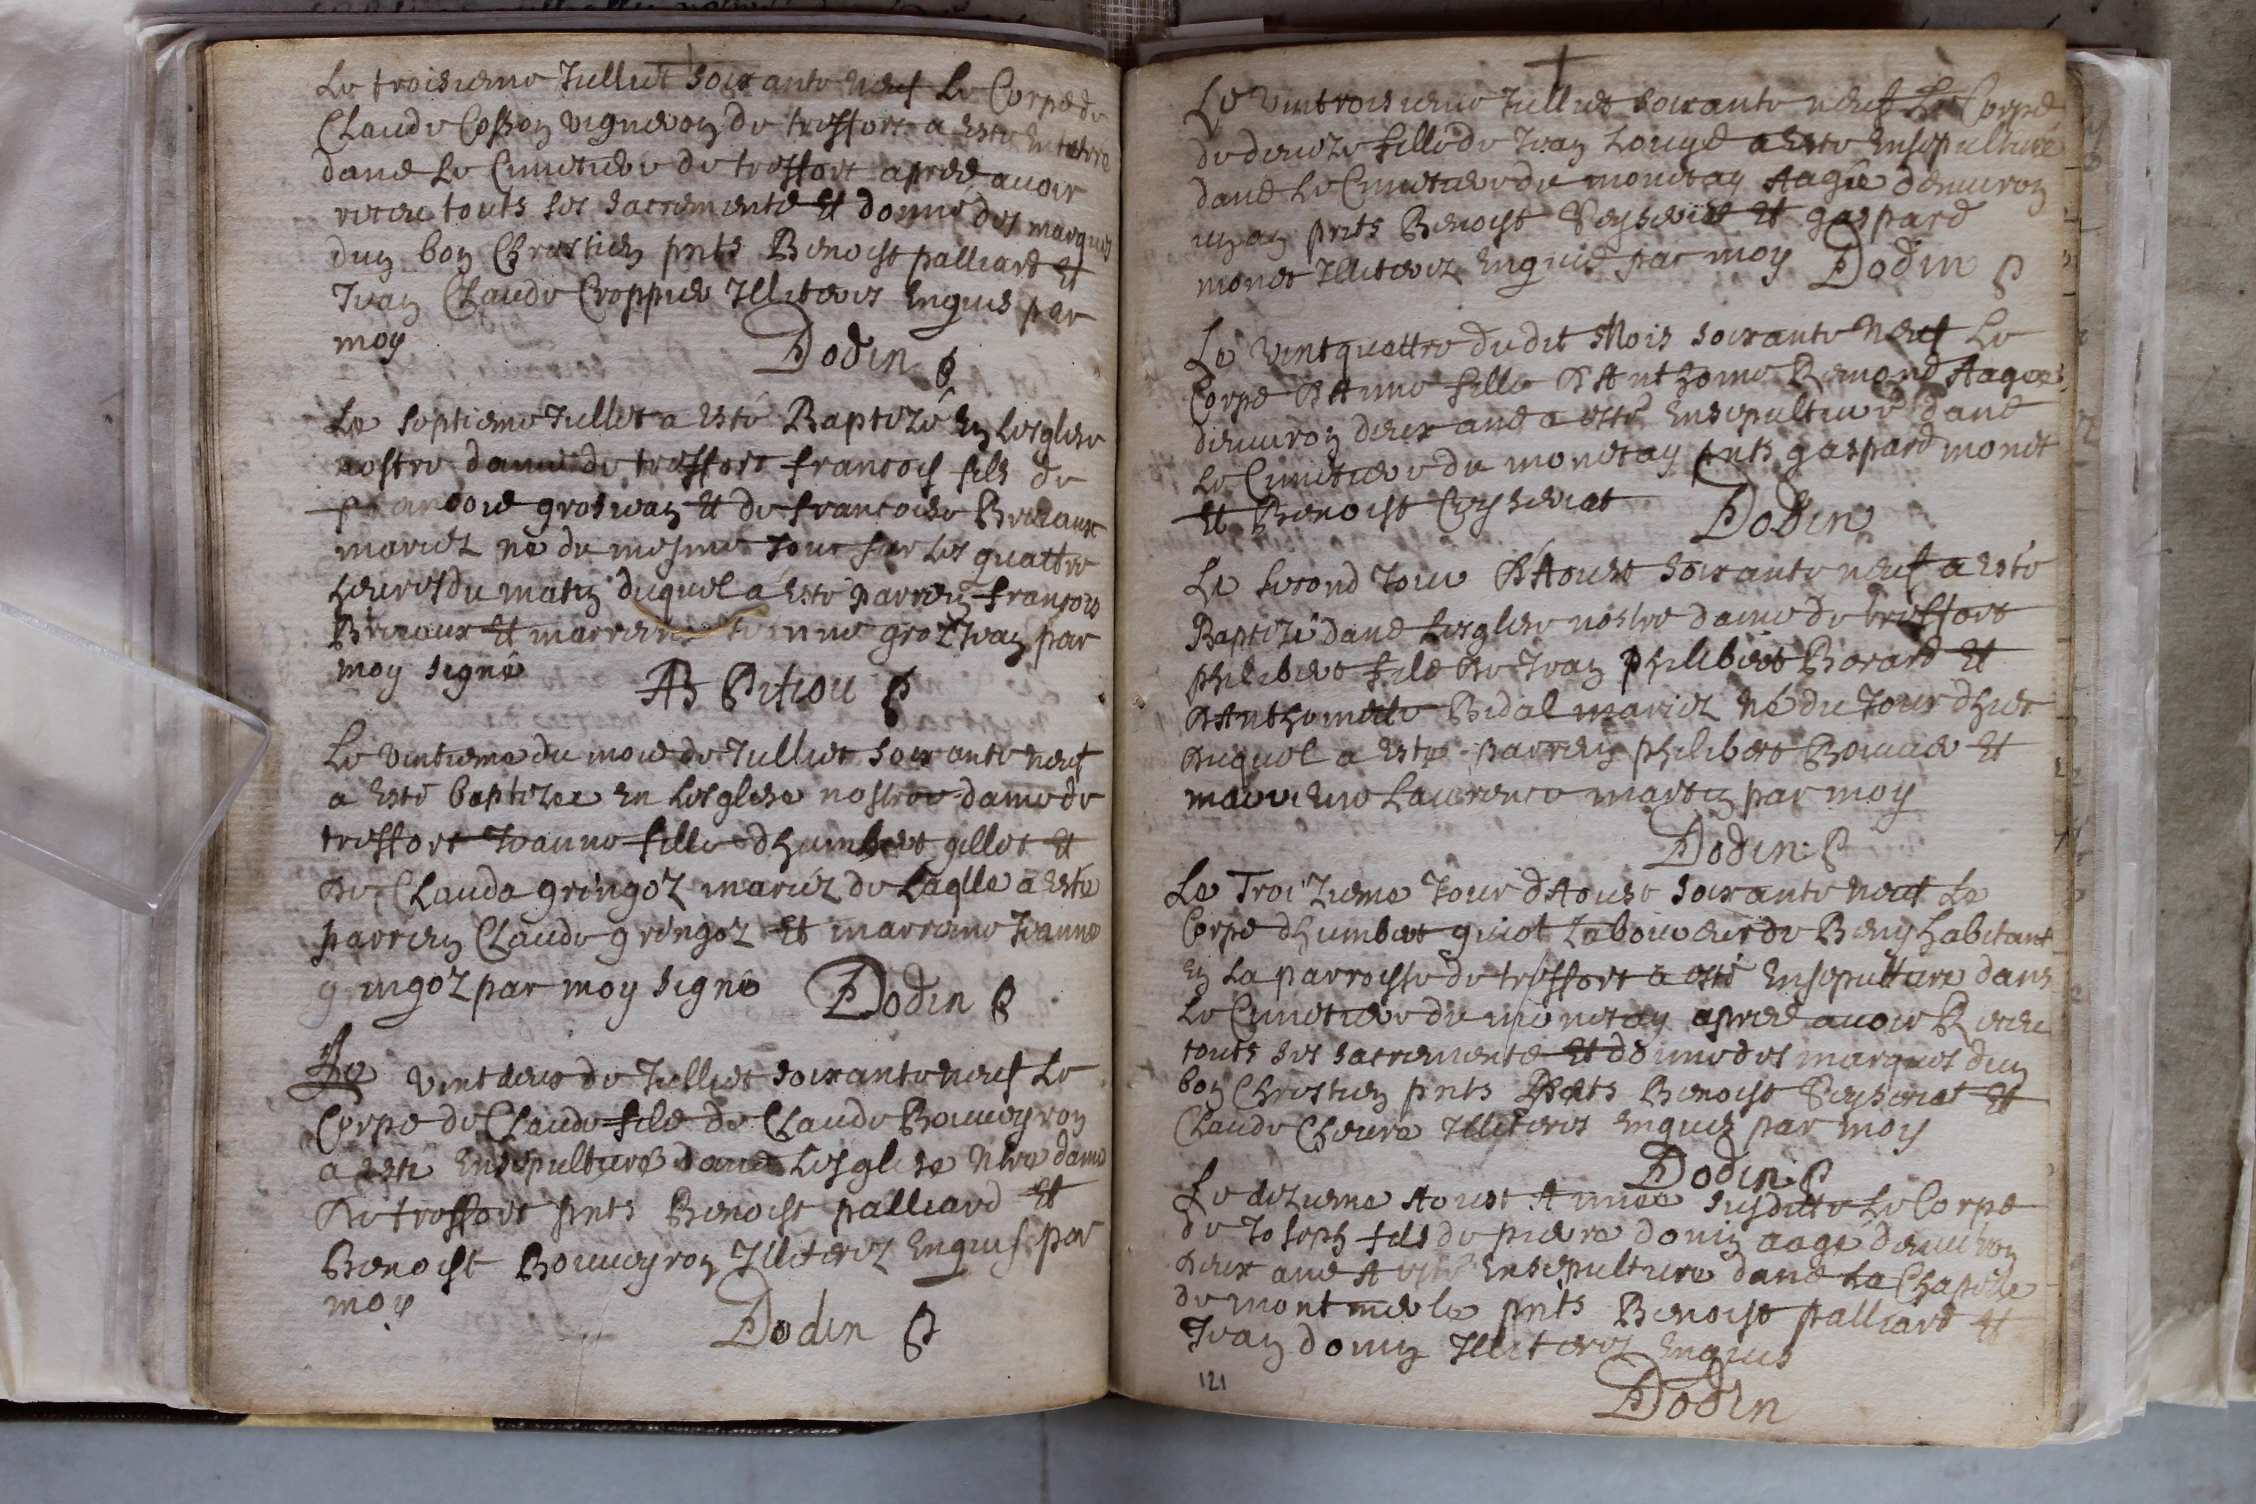 Le troisieme Julliet soixante neuf Le Corps de
Claude Cosson vigneron de treffort a esté enterré
dans Le Cimetiere de treffort apres avoir
receu touts ses sacrements Et donné des marques
dun bon Chrestien pnts Benoist palliard Et
Jean Claude Croppier Illiteres Enquis par
moy
Dodin
Le septieme Julliet a esté Baptizé En Lesglise
nostre dame de treffort francois fils de
francois grosjean Et de francoise Brevaux
mariez né du mesme Jour sur les quattre
heures du matin duquel a esté parrein francois
Brevaux Et marreine groz Jean par
moy signé
AB Pitiou
Le vintieme du mois de Julliet soixante neuf
a esté baptizee En Lesglise nostre dame de
treffort Jeanne fille dhumbert gillet Et
de Clauda gringoz mariéz de Laqlle a esté
parrein Claude gringoz Et marreine Jeanne
gringoz par moy signé Dodin
Le vint deus de Julliet soixante neuf Le
Corps de Claude fils de Claude Bouveyron
a esté Ensepulturé dans Lesglise nre dame
de treffort pnts Benoist palliard Et
Benoist Bouveyron Illiterez Enquis par
moy
Dodin
Le vintroisieme Julliet soixante neuf Le Corps
de denize fille de Jean Louge a esté Ensepulturé
dans Le Cimetiere du monetay Aagée denviron
un an pnts Benoist Seyseriat Et gaspard
monet Illiterez Enquis par moy Dodin
Le vintquattre du dit Mois soixante neuf Le
Corps d'Anne fille d'Anthome Remond Aagée
dienviron deux ans a esté Ensepulturé dans
Le Cimetiere du monetay pnts gaspard monet
Et Benoist Ceyseriat Dodin
Le second Jour d'Aoust soixante neuf a esté
Baptizé dans Lesglise nostre dame de treffort
philibert fils de Jean philibert Borard Et
d'Anthomette Bidal mariez né du Jour dhier
duquel a esté parrein philibert Bouvier Et
marreine Laurence martin par moy
Dodin
Le Troizieme Jour dAoust soixante neuf Le
Corps dhumbert guiot Laboureur de Beny habitant
En La parroisse de treffort a esté Ensepulturé dans
Le Cimetiere du monetay apres avoir Receu
touts ses sacrements Et donné des marques dun
bon Chrestien pnts Benoist Seyseriat Et
Claude Chevre Illiteres Enquis par moy
Dodin
Le dizieme Aoust Année susditte Le Corps
de Joseph fils de pierre donin aagé denviron
deux ans A esté Ensepulturé dans La Chapelle
de montmerle pnts Benoist palliard Et
Jean donin Illiterez Enquis
Dodin
121